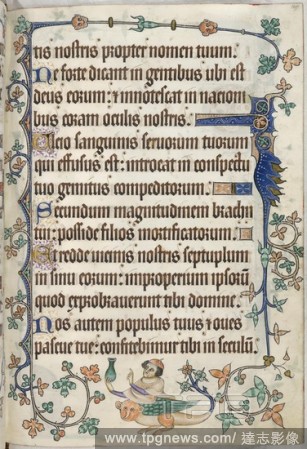 tis nostris propter nomen tuum.
Ne forte dicant in gentibus ubi est
deus eorum: ⁊ innotescat in nacioni
bus coram oculis nostris.
Ulcio sanguinis servorum tuorum
qui effusus est: introeat in conspectu
tuo gemitus compeditorum.
Secundum magnitudinem brachii
tui: posside filios mortificatorum.
Et redde vicinis nostris septuplum
in sinu eorum: improperium ipsorū
quod exprobraverunt tibi domine.
Nos autem populus tuus ⁊ oves
pascue tue: confitebimur tibi in seculū.
TPG
www.tpgnews.com/ 達志影像